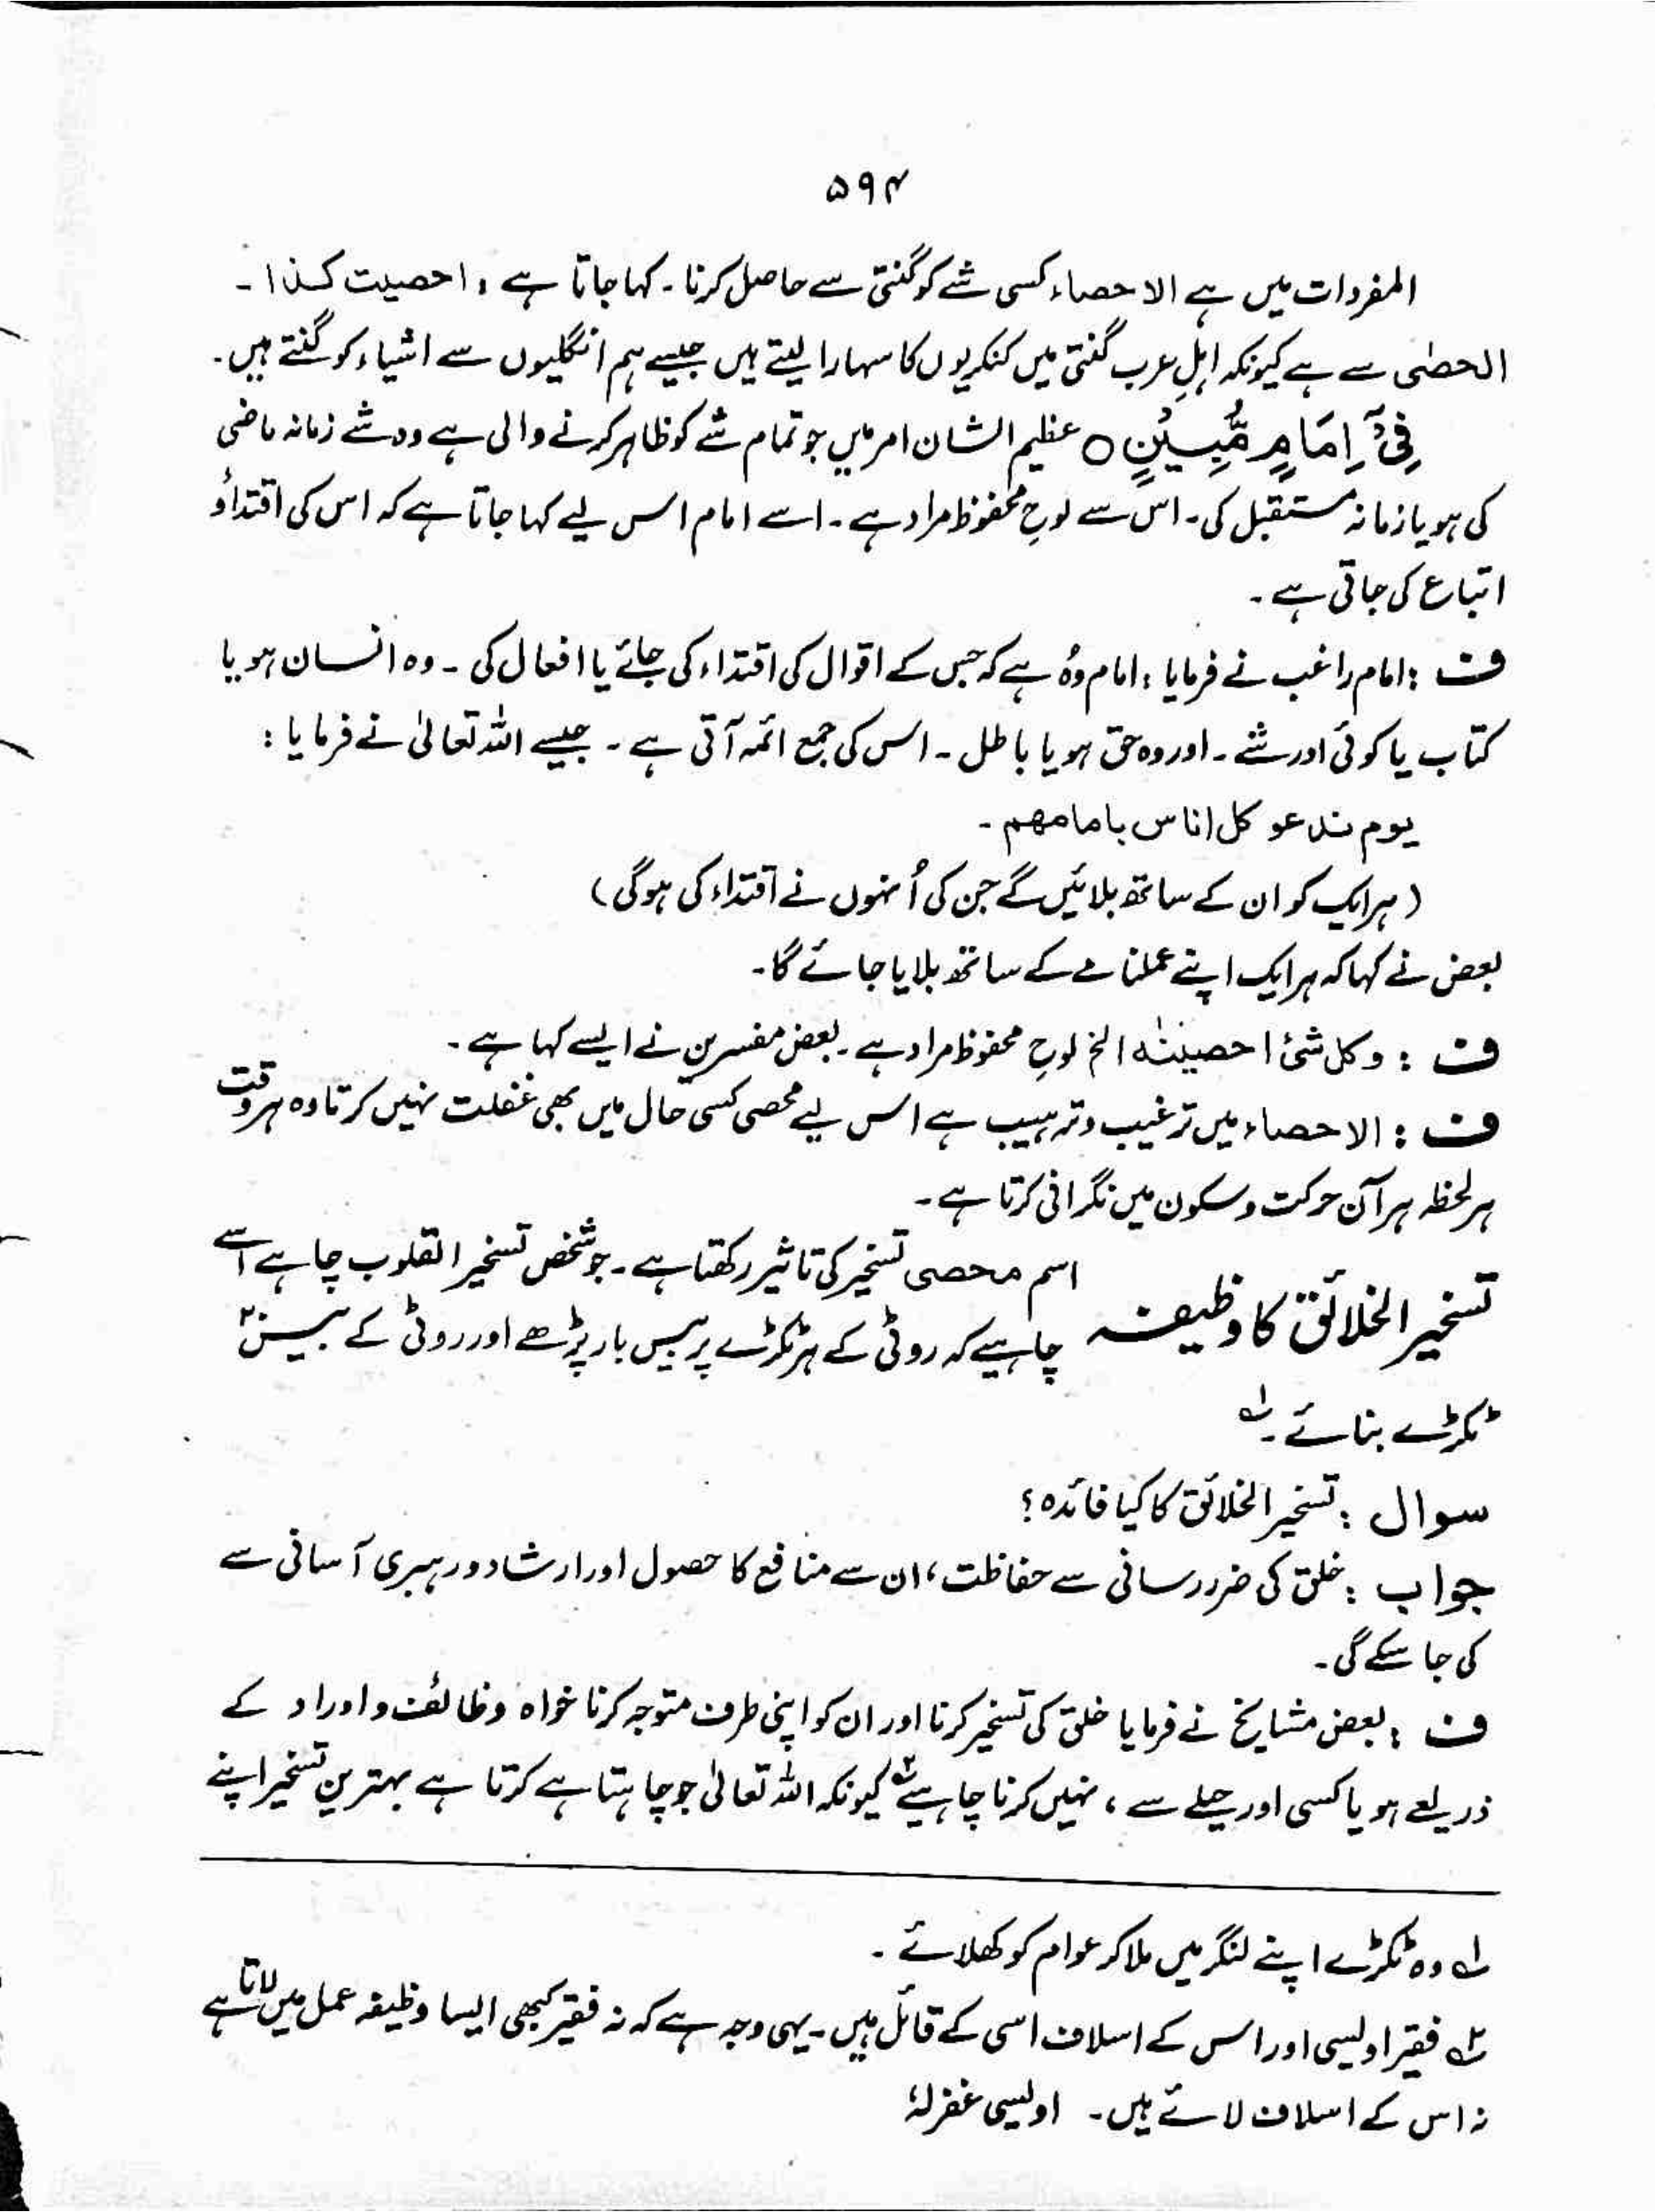 ۵۹۴
المفردات میں ہے الاحصاء کسی شے کو گنتی سے حاصل کرنا۔ کہا جاتا ہے، احصیت کذا۔
الحصٰی سے ہے کیونکہ اہلِ عرب گنتی میں کنکریوں کا سہارا لیتے ہیں جیسے ہم انگلیوں سے اشیاء کو گنتے ہیں۔
فِیْٓ اِمَامٍ مُّبِیْنٍ ○ عظیم الشان امر میں جو تمام شے کو ظاہر کرنے والی ہے وہ شے زمانہ ماضی
کی ہو یا زمانہ مستقبل کی۔ اس سے لوحِ محفوظ مراد ہے۔ اسے امام اس لیے کہا جاتا ہے کہ اس کی اقتداؤ
اتباع کی جاتی ہے۔
ف : امام راغب نے فرمایا : امام وُہ ہے کہ جس کے اقوال کی اقتداء کی جائے یا افعال کی ۔ وہ انسان ہو یا
کتاب یا کوئی اور شے۔ اور وہ حق ہو یا باطل۔ اس کی جمع ائمہ آتی ہے۔ جیسے اللہ تعالیٰ نے فرمایا :
یوم ندعو کل اناس بامامھم۔
(ہر ایک کو ان کے ساتھ بلائیں گے جن کی اُنہوں نے اقتداء کی ہوگی)
بعض نے کہا کہ ہر ایک اپنے عملنامے کے ساتھ بلایا جائے گا۔
ف : وکل شئ احصینٰہ الخ لوح محفوظ مراد ہے۔ بعض مفسرین نے ایسے کہا ہے۔
ف : الاحصاء میں ترغیب و ترہیب ہے اس لیے محصی کسی حال میں بھی غفلت نہیں کرتا وہ ہر وقت
ہر لحظہ ہر آن حرکت و سکون میں نگرانی کرتا ہے۔
تسخیر الخلائق کا وظیفہ اسم محصی تسخیر کی تاثیر رکھتا ہے۔ جو شخص تسخیر القلوب چاہے اسے
چاہیے کہ روٹی کے ہر ٹکڑے پر بیس بار پڑھے اور روٹی کے بیس۲۰
ٹکڑے بنائے۔ لہ
سوال : تسخیر الخلائق کا کیا فائدہ؟
جواب : خلق کی ضرر رسانی سے حفاظت، ان سے منافع کا حصول اور ارشاد و رہبری آسانی سے
کی جا سکے گی۔
ف : بعض مشایخ نے فرمایا خلق کی تسخیر کرنا اور ان کو اپنی طرف متوجہ کرنا خواہ وظائف و اوراد کے
ذریعے ہو یا کسی اور حیلے سے، نہیں کرنا چاہیے ۲ہ کیونکہ اللہ تعالیٰ جو چاہتا ہے کرتا ہے بہترین تسخیر اپنے
لہ وہ ٹکڑے اپنے لنگر میں ملا کر عوام کو کھلائے۔
۲ہ فقیر اویسی اور اس کے اسلاف اسی کے قائل ہیں۔ یہی وجہ ہے کہ نہ فقیر کبھی ایسا وظیفہ عمل میں لاتا ہے
نہ اس کے اسلاف لائے ہیں۔ اویسی غفرلہٗ